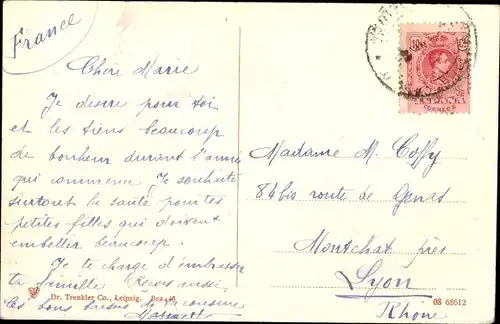 France
Chère Marie
Je désire pour toi
et les tiens beaucoup
de bonheur durant l'année
qui commence. Je souhaite
surtout la santé pour tes
petites filles qui doivent
embellir beaucoup.
Je te charge d'embrasser
ta famille Reçois aussi
les bons baisers de ta cousine
Dr. Trenkler Co., Leipzig.
ESPAÑA
CORREOS
Madame M. Coffy
84 bis route de Genas
Montchat près
Lyon
Rhône
08 68612